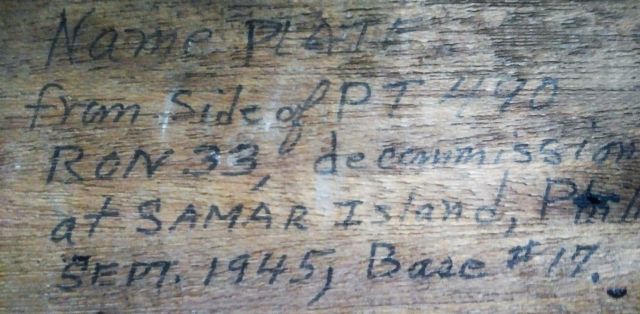 Name PLATE
from Side of PT 490
RON 33, decommission
at SAMAR Island, Phil
SEPT. 1945, Base #17.